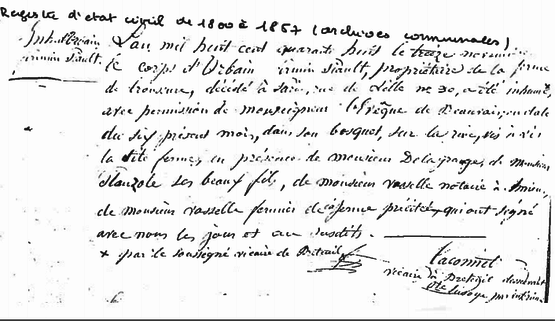 Registre d'état civil de 1800 à 1857 (archives communales)
Inh. Urbain
firmin Siault.
L'an mil huit cent quarante huit le treize novembre
le corps d'Urbain firmin Siault, propriétaire de la ferme
de, décédé à Paris, rue de Lille no 30, a été inhumé,
avec permission de monseigneur l'Evêque de Beauvais, en date
du six présent mois, dans son bosquet, sur la rive, vis à vis
la dite ferme, en présence de monsieur Delagrange, de monsieur
ses beaux fils, de monsieur vasselle notaire à Amiens,
de monsieur vasselle fermier de la ferme précitée qui ont signé
avec nous les jour et an susdits.
x par le soussigné vicaire de Breteuil
vicaire de Breteuil desservant
par intérim